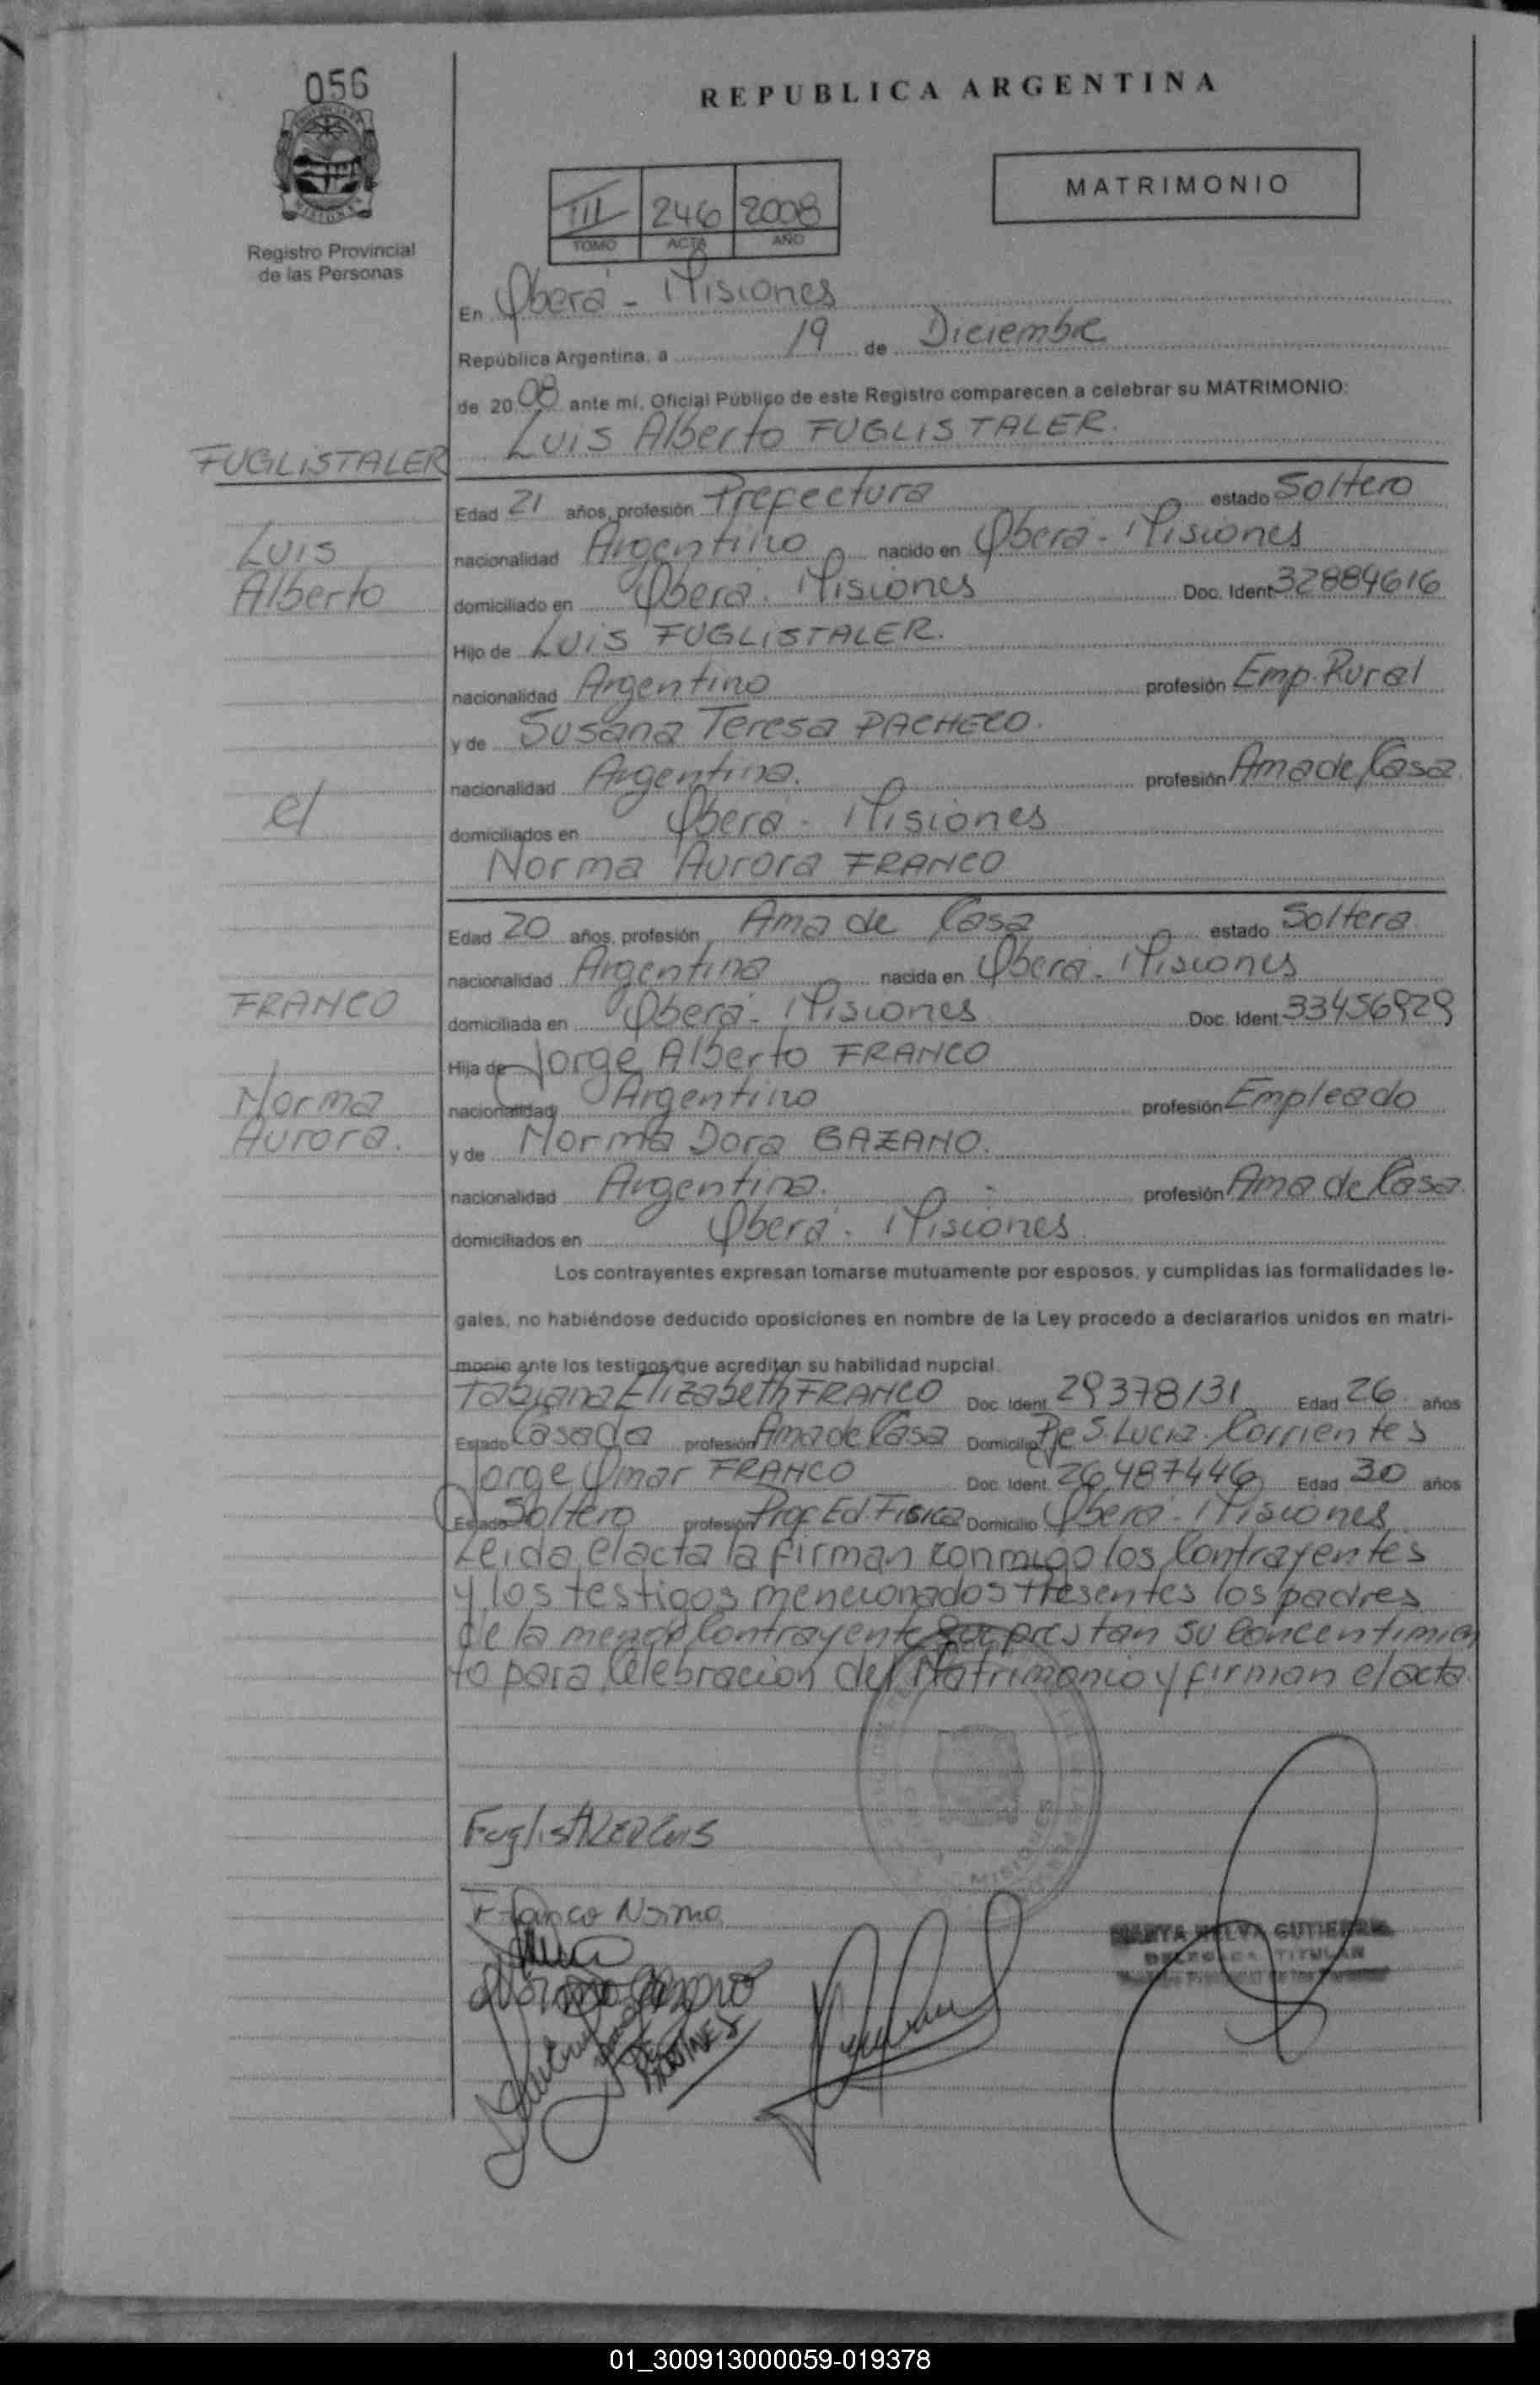 056
REPUBLICA ARGENTINA
MATRIMONIO
III 246 2008
TOMO ACTA AÑO
MISIONES
Registro Provincial
de las Personas
En Oberá - Misiones
República Argentina, a 19 de Diciembre
de 2008 ante mi, Oficial Público de este Registro comparecen a celebrar su MATRIMONIO:
Luis Alberto FUGLISTALER.
FUGLISTALER
Edad 21 años, profesión Prefectura estado Soltero
Luis
nacionalidad Argentino nacido en Oberá - Misiones
Alberto
domiciliado en Oberá - Misiones Doc. Ident 32884616
Hijo de Luis FUGLISTALER.
nacionalidad Argentino profesión Emp. Rural
y de Susana Teresa PACHECO.
nacionalidad Argentina. profesión Ama de Casa
c/
domiciliados en Oberá - Misiones
Norma Aurora FRANCO
Edad 20 años, profesión Ama de Casa estado Soltera
nacionalidad Argentina nacida en Oberá - Misiones
FRANCO
domiciliada en Oberá - Misiones Doc. Ident 33456929
Hija de Jorge Alberto FRANCO
Norma
nacionalidad Argentino profesión Empleado
Aurora.
y de Norma Dora GAZANO.
nacionalidad Argentina. profesión Ama de Casa
domiciliados en Oberá - Misiones
Los contrayentes expresan tomarse mutuamente por esposos, y cumplidas las formalidades le-
gales, no habiéndose deducido oposiciones en nombre de la Ley procedo a declararlos unidos en matri-
monio ante los testigos que acreditan su habilidad nupcial.
Fabiana Elizabeth FRANCO Doc. Ident. 29378131 Edad 26 años
Estado Casada profesión Ama de Casa Domicilio Pje S. Lucia. Corrientes
Jorge Omar FRANCO Doc. Ident. 26487446 Edad 30 años
Estado Soltero profesión Prof Ed. Fisica Domicilio Oberá - Misiones
Leida el acta la firman conmigo los Contrayentes
y los testigos mencionados Presentes los padres
de la menor Contrayente que prestan su Concentimien
to para Celebracion del Matrimonio y firman el acta.
MISIONES
Franco Norma
GUTIERREZ
DELEGADA TITULAR
01_300913000059-019378